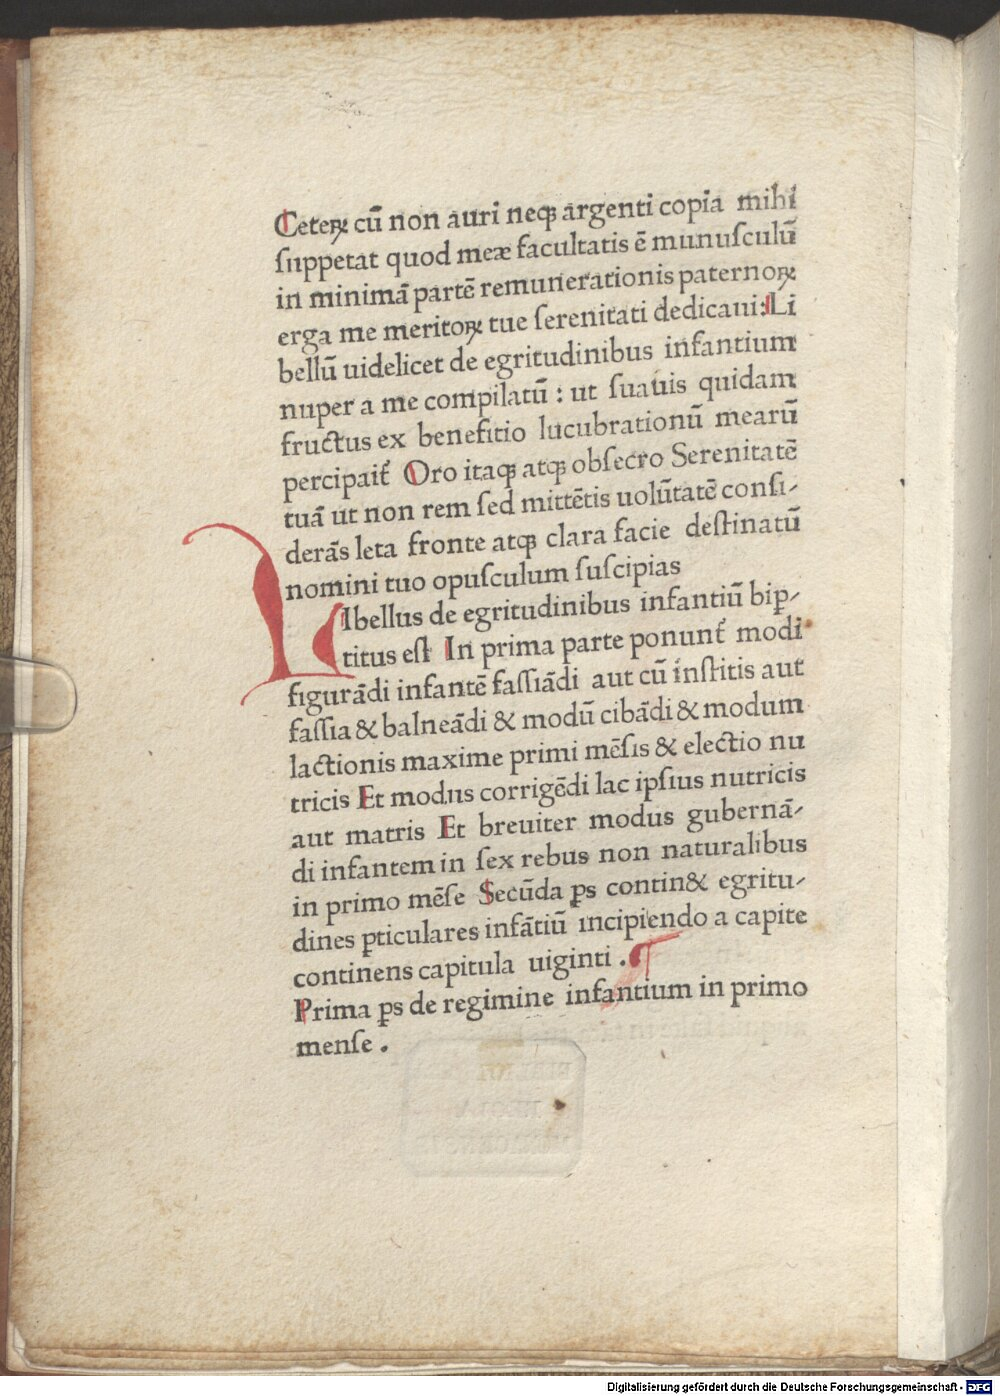 Ceteꝝ cū non auri neqꝫ argenti copia mihi
ſuppetat quod meæ facultatis ē munuſculū
in minimā partē remunerationis paternoꝝ
erga me meritoꝝ tue ſerenitati dedicaui: Li
bellū uidelicet de egritudinibus infantium
nuper a me compilatū : ut ſuauis quidam
fructus ex benefitio lucubrationū mearū
percipait̃ Oro itaqꝫ atqꝫ obſecro Serenitatē
tuā ut non rem ſed mittētis uolūtatē conſi-
derās leta fronte atqꝫ clara facie deſtinatū
nomini tuo opuſculum ſuſcipias
LIbellus de egritudinibus infantiū bip̱-
titus eſt In prima parte ponunt̃ modi
figurādi infantē faſſiādi aut cū inſtitis aut
faſſia & balneādi & modū cibādi & modum
lactionis maxime primi mēſis & electio nu
tricis Et modus corrigēdi lac ipſius nutricis
aut matris Et breuiter modus gubernā-
di infantem in ſex rebus non naturalibus
in primo mēſe Secūda ꝑs contin& egritu-
dines ꝑticulares infātiū incipiendo a capite
continens capitula uiginti . ¶
Prima ꝑs de regimine infantium in primo
menſe .
Digitalisierung gefördert durch die Deutsche Forschungsgemeinschaft - DFG